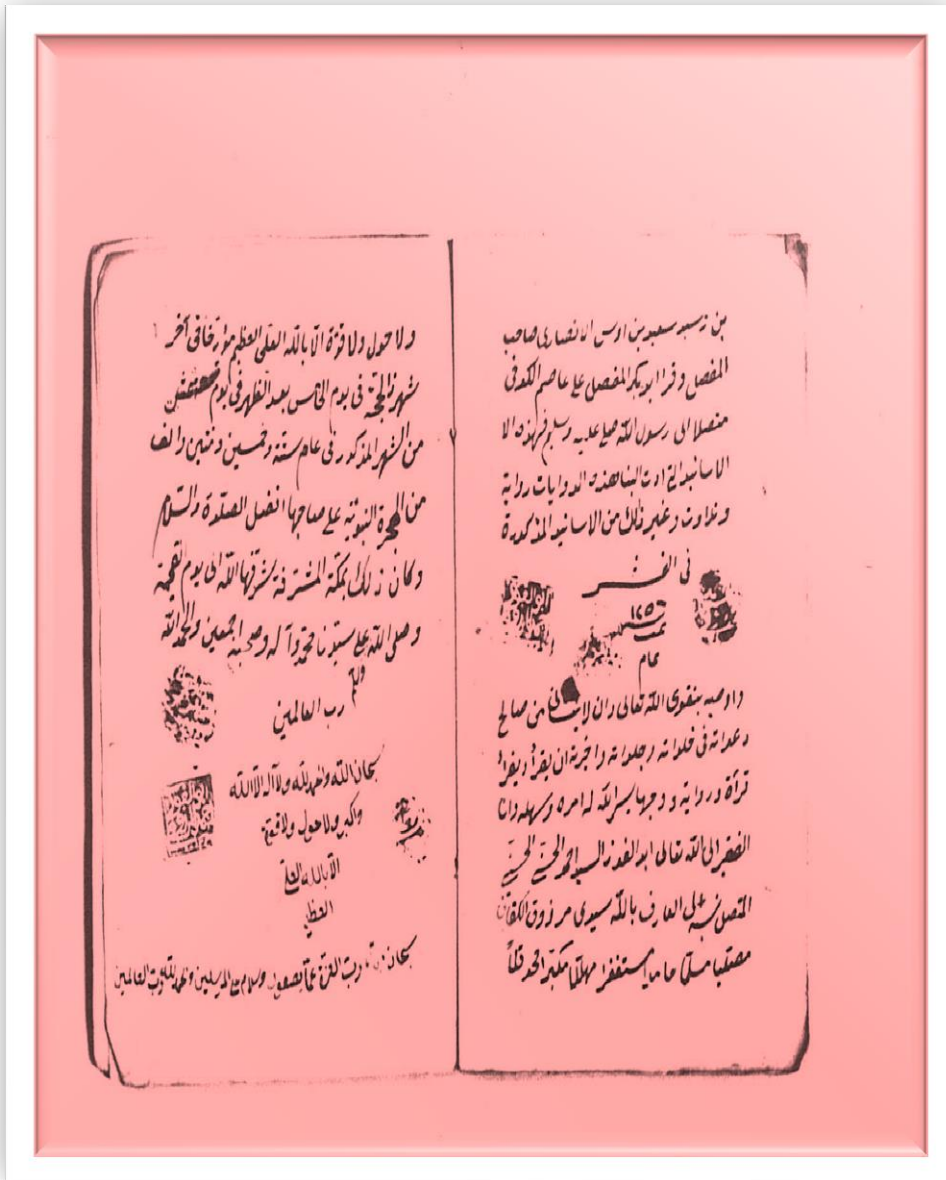 بن زسيد سعيد بن اوس الانصاري صاحب
المفصل وقرا ابو بكر المفصل على عاصم الكوفي
متصلا الى رسول الله صلى عليه وسلم فهذه الا
الاسانيد التي ادت الينا هذه الروايات رواية
وتلاوت وغير ذلك من الاسانيد المذكورة
في النشر
١٢٥٦
تمت
تمام
واوصيه بتقوى الله تعالى وان لا ينساني من صالح
دعواته في خلواته وجلواته واجزته ان يقرأ ويقرأ
قرأة ورواية ووجها يسر الله له امره وسهله وانا
الفقير الى الله تعالى ابو الفوز السيد احمد الحسني الحسني
المتصل نسبه الى العارف بالله سيدي مرزوق الكفافي
مصليا مسلما حامدا مستغفرا مهللا مكبرا لحد قائلا
ولا حول ولا قوة الا بالله العلي العظيم مؤرخا في آخر
شهر ذالحجة في يوم الخامس بعد الظهر في يوم
من الشهر المذكور في عام ستة وخمسين ومئتين والف
من الهجرة النبوية على صاحبها افضل الصلوة والسلام
وكان ذلك بمكة المشرفة شرفها الله الى يوم القيمة
وصلى الله على سيدنا محمد وآله وصحبه اجمعين والحمد لله
رب العالمين
سبحان الله والحمد لله ولا آله الا الله
واكبر ولا حول ولا قوة
الا بالله العلي
العظيم
سبحان ربك رب العزة عما يصفون وسلام على المرسلين والحمد لله رب العالمين